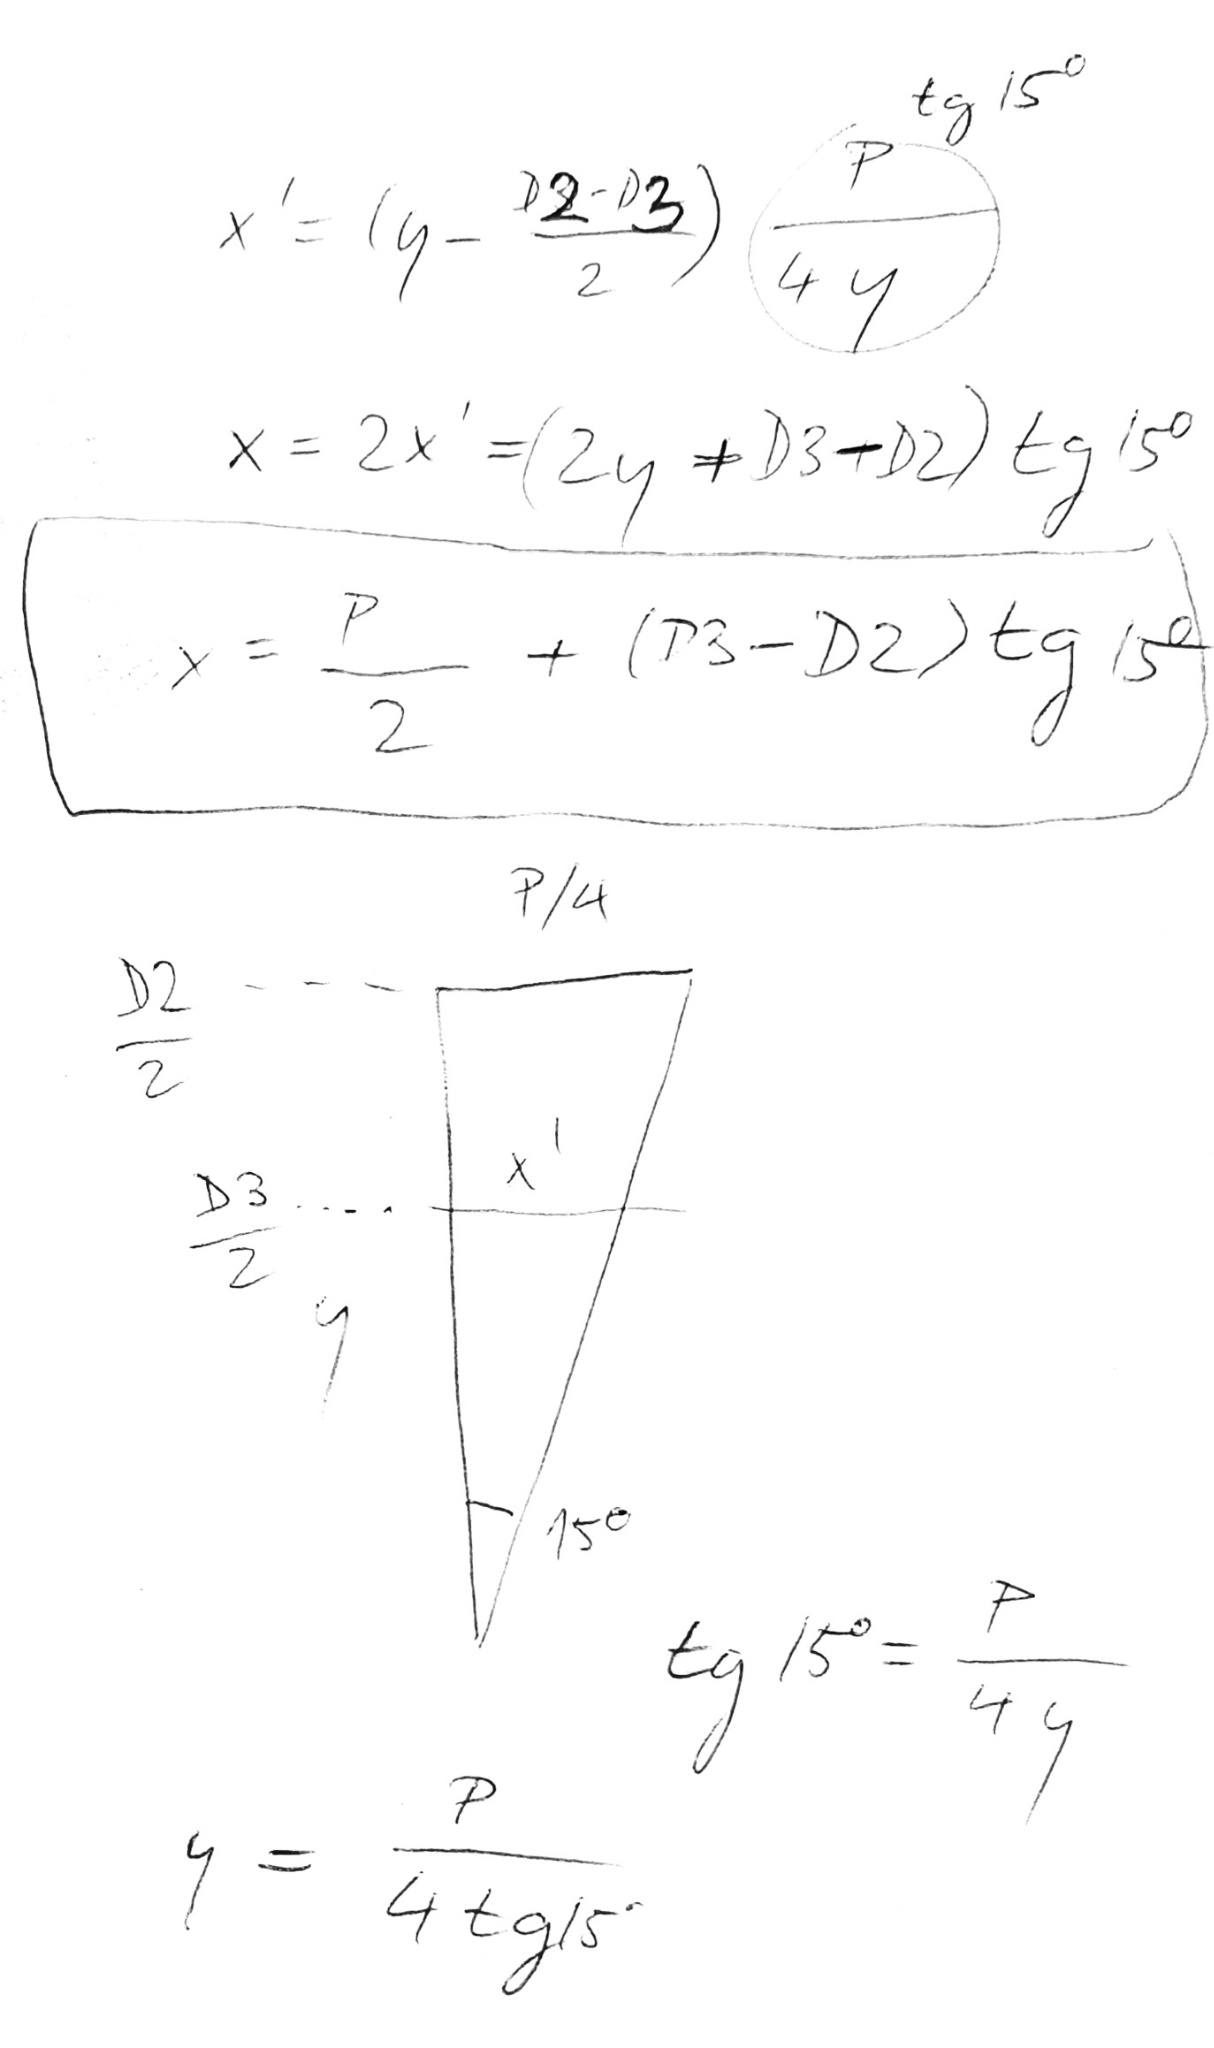 tg 15°
x' = (y - (D2-D3)/2) P/(4y)
x = 2x' = (2y + D3 - D2) tg 15°
x = P/2 + (D3 - D2) tg 15°
P/4
D2/2
x'
D3/2
y
15°
tg 15° = P/(4y)
y = P/(4 tg 15°)